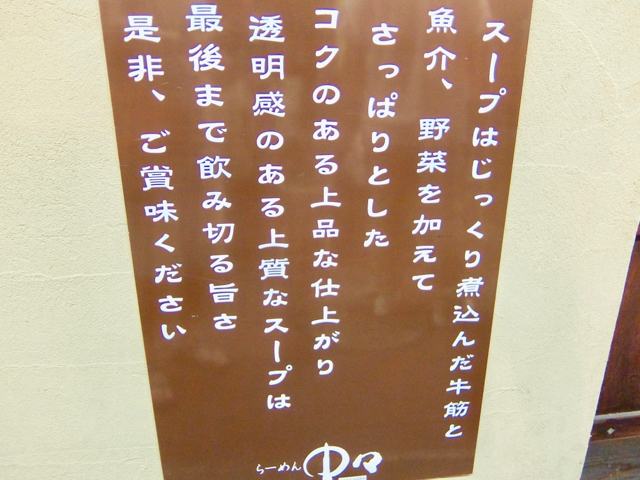 スープはじっくり煮込んだ牛筋と
魚介、野菜を加えて
さっぱりとした
コクのある上品な仕上がり
透明感のある上質なスープは
最後まで飲み切る旨さ
是非、ご賞味ください
らーめん